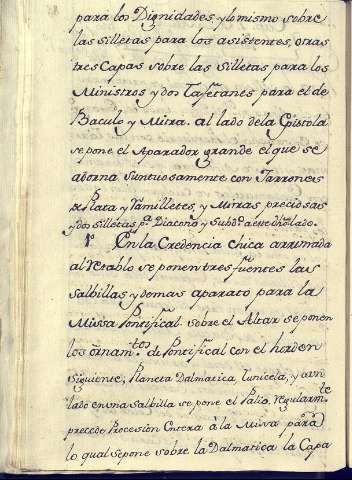 para los Dignidades, y lo mismo sobre
las silletas para los asistentes, otras
tres Capas sobre las silletas para los
Ministros y dos tafetanes para el de
Baculo y Mitra. al lado dela Epistola
se pone el Aparador grande el que se
adorna suntuosamente con Jarrones
de Plata y Ramilletes, y Mitras preciosas
y dos silletas pª. Diacono y Subdº. aese dho lado.
1º En la Credencia chica arrimada
al retablo se ponen tres fuentes las
salbillas y demas aparato para la
Missa Pontifical. sobre el Altar se ponen
los ornamtos. de Pontifical con el horden
siguiente; Planeta Dalmatica, tunicela, y aun
lado en una salbilla se pone el Palio, regularmte
precede Procesion Entera à la Missa para
lo qual se pone sobre la Dalmatica la Capa